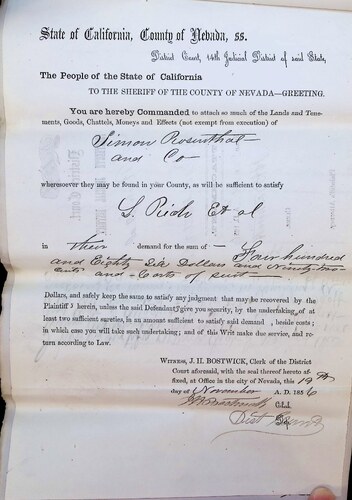 State of California, County of Nevada, ss.
District Court, 14th Judicial District of said State,
The People of the State of California
TO THE SHERIFF OF THE COUNTY OF NEVADA—GREETING.
You are hereby Commanded to attach so much of the Lands and Tene-
ments, Goods, Chattels, Moneys and Effects (not exempt from execution) of
Simon Rosenthal
and Co
wheresoever they may be found in your County, as will be sufficient to satisfy
S. Rich Et al
in their demand for the sum of Four hundred
and Eighty Six Dollars and Ninety two
cents and Costs of suit
Dollars, and safely keep the same to satisfy any judgment that may be recovered by the
Plaintiff s herein, unless the said Defendant give you security, by the undertaking of at
least two sufficient sureties, in an amount sufficient to satisfy said demand, besides costs;
in which case you will take such undertaking; and of this Writ make due service, and re-
turn according to Law.
WITNESS, J. H. BOSTWICK, Clerk of the District
Court aforesaid, with the seal thereof hereto af-
fixed, at Office in the city of Nevada, this 19th
day of November A. D. 1856
J H Bostwick Clk
Dist Court